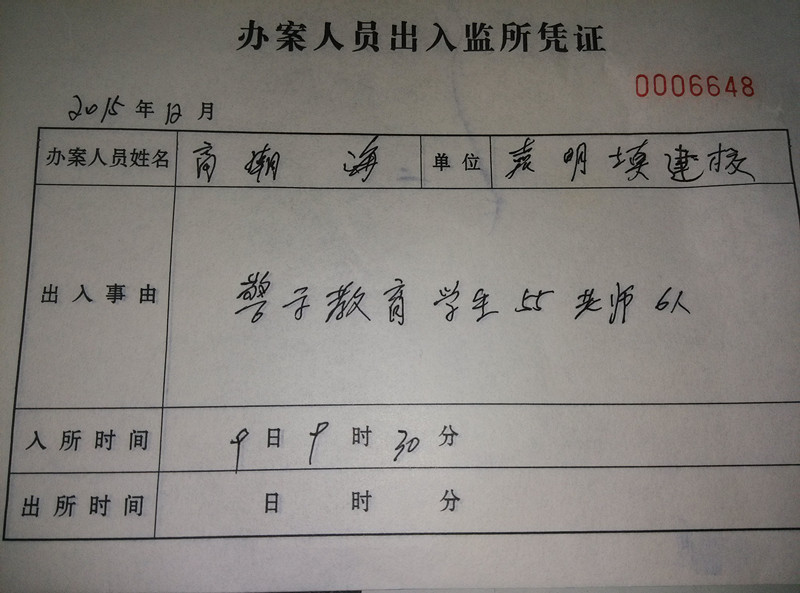 办案人员出入监所凭证
0006648
2015年12月
办案人员姓名 商潮海 单位 明镇建校
出入事由 警示教育学生55老师6人
入所时间 9日9时30分
出所时间 日 时 分